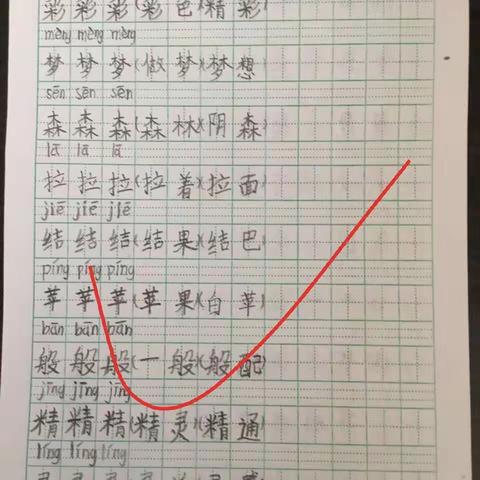 彩彩彩(彩色)(精彩)
mèng mèng mèng
梦梦梦(做梦)(梦想
sēn sēn sēn
森森森(森林)(阴森
lā lā lā
拉拉拉(拉着)(拉面
jiē jiē jiē
结结结(结果)(结巴
píng píng píng
苹苹苹(苹果)(白苹
bān bān bān
般般般(一般)(般配
jīng jīng jīng
精精精(精灵)(精通
líng líng líng